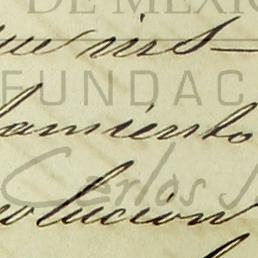 DE MÉXIC
que ins-
FUNDAC
amiento
Carlos S
olucion